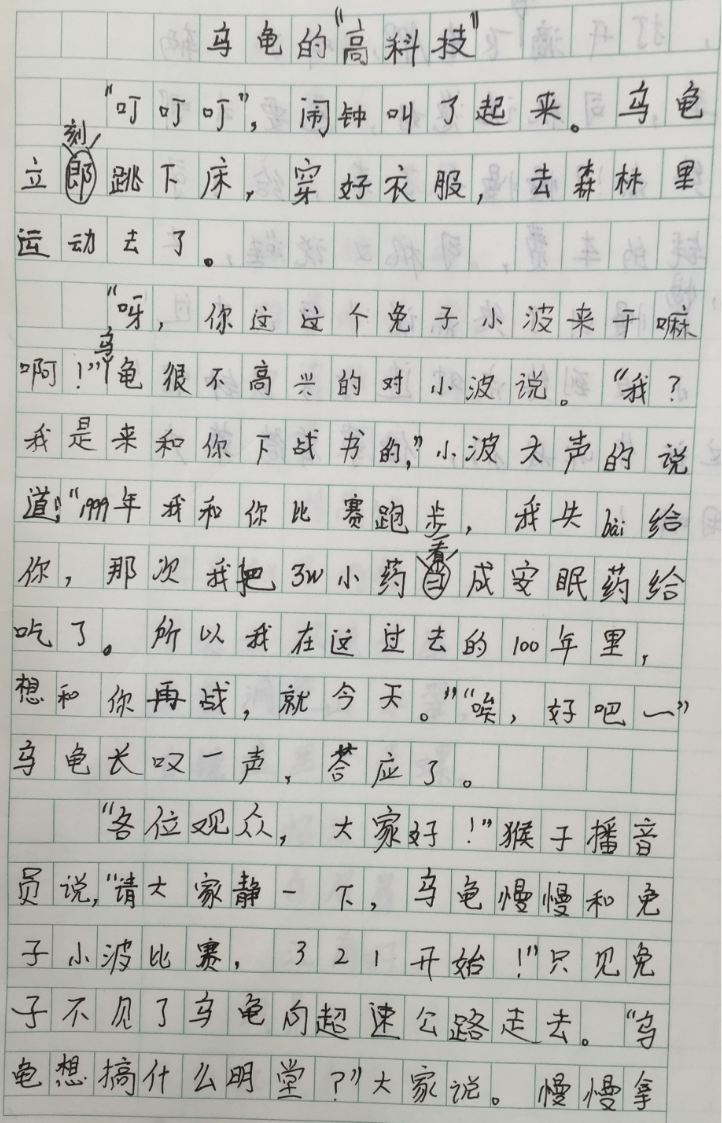 乌龟的"高科技"
"叮叮叮",闹钟叫了起来。乌龟
立刻跳下床,穿好衣服,去森林里
运动去了。
"呀,你过这个兔子小波来干嘛
啊!"乌龟很不高兴的对小波说。"我?
我是来和你下战书的,"小波大声的说
道:"1999年我和你比赛跑步,我失bài给
你,那次我把3W小药看成安眠药给
吃了。所以我在这过去的100年里,
想和你再战,就今天。""唉,好吧—"
乌龟长叹一声,答应了。
"各位观众,大家好!"猴子播音
员说,"请大家静一下,乌龟慢慢和兔
子小波比赛,321开始!"只见兔
子不见了乌龟向超速公路走去。"乌
龟想搞什么明堂?"大家说。慢慢拿